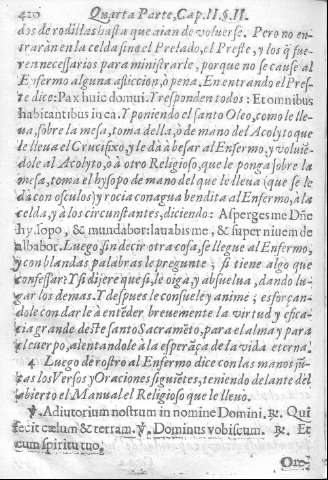 420 Quarta Parte, Cap. II. §. II.
dos de rodillas hasta que aian de voluerse. Pero no en-
traràn en la celda sino el Prelado, el Preste, y los q̃ fue-
ren necessarios para ministrarle, porque no se cause al
Enfermo alguna afliccion, ò pena. En entrando el Pres-
te dice: Pax huic domui. Y responden todos: Et omnibus
habitantibus in ea. Y poniendo el santo Oleo, como le lle-
ua, sobre la mesa, toma della, ò de mano del Acolyto que
le lleua el Crucifixo, y le dà à besar al Enfermo, y voluiẽ-
dole al Acolyto, o à otro Religioso, que le ponga sobre la
mesa, toma el hysopo de mano del que le lleua (que se le
dà con osculos) y rocia con agua bendita al Enfermo, à la
celda, y à los circunstantes, diciendo: Asperges me Dñe
hyssopo, & mundabor: lauabis me, & super niuem de-
albabor. Luego, sin decir otra cosa, se llegue al Enfermo,
y con blandas palabras le pregunte; si tiene algo que
confessar? Y si dijere que si, le oiga, y absuelua, dando lu-
gar los demas. Y despues le consuele y anime; esforçan-
dole con darle à entẽder, breuemente la virtud y efica-
cia grande deste santo Sacramẽto, para el alma y para
el cuerpo, alentandole à la esperãça de la vida eterna.
4 Luego de rostro al Enfermo dice con las manos jũ-
tas los Versos y Oraciones siguiẽtes, teniendo delante dèl
abierto el Manual el Religioso que le lleuò.
℣. Adiutorium nostrum in nomine Domini. ℟. Qui
fecit cælum & terram. ℣. Dominus vobiscum. ℟. Et
cum spiritu tuo.
Ore-